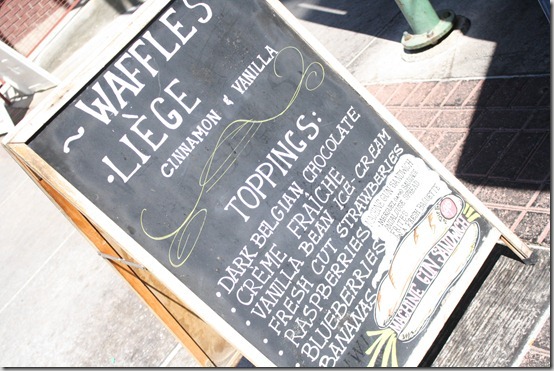 ~ WAFFLES
· LIÈGE
CINNAMON & VANILLA
TOPPINGS:
· DARK BELGIAN CHOCOLATE
· CRÈME FRAÎCHE
· VANILLA BEAN ICE-CREAM
· FRESH CUT STRAWBERIES
· RASPBERRIES
· BLUEBERRIES
· BANANAS
MACHINE GUN SANDWICH